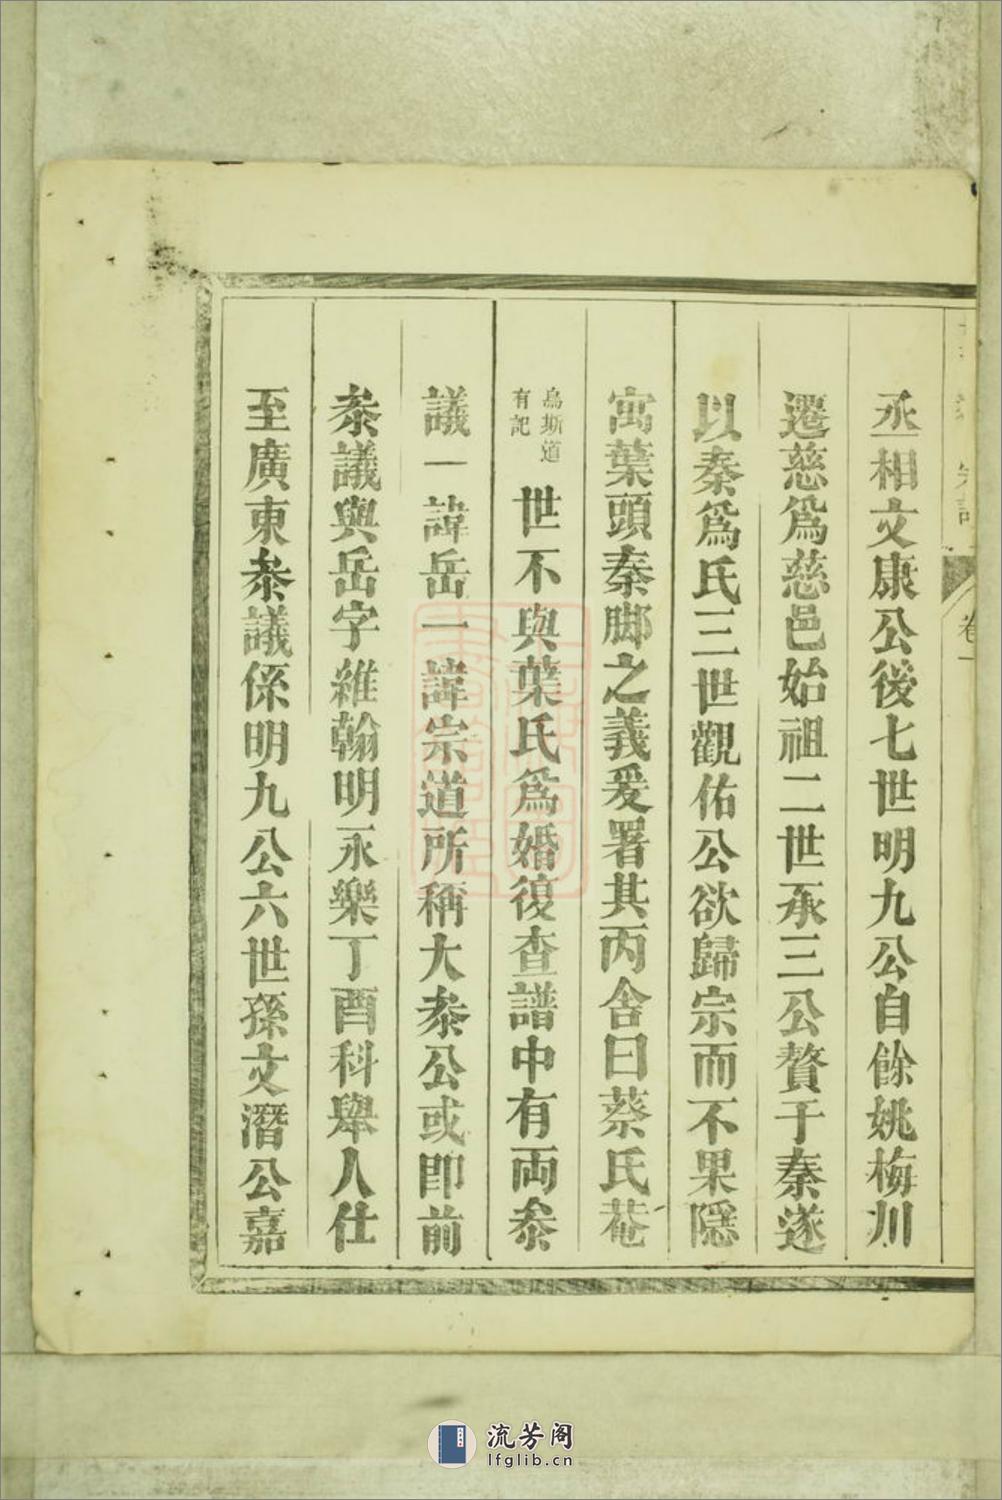 丞相文康公後七世明九公自餘姚梅川
遷慈爲慈邑始祖二世承三公贅于秦遂
以秦爲氏三世觀佑公欲歸宗而不果隱
寓葉頭秦脚之義爰署其丙舍曰蔡氏菴
烏斯道
有記
世不與葉氏爲婚復查譜中有両叅
議一諱岳一諱宗道所稱大叅公或卽前
叅議與岳字維翰明永樂丁酉科舉人仕
至廣東叅議係明九公六世孫文潛公嘉
卷一
流芳阁
lfglib.cn